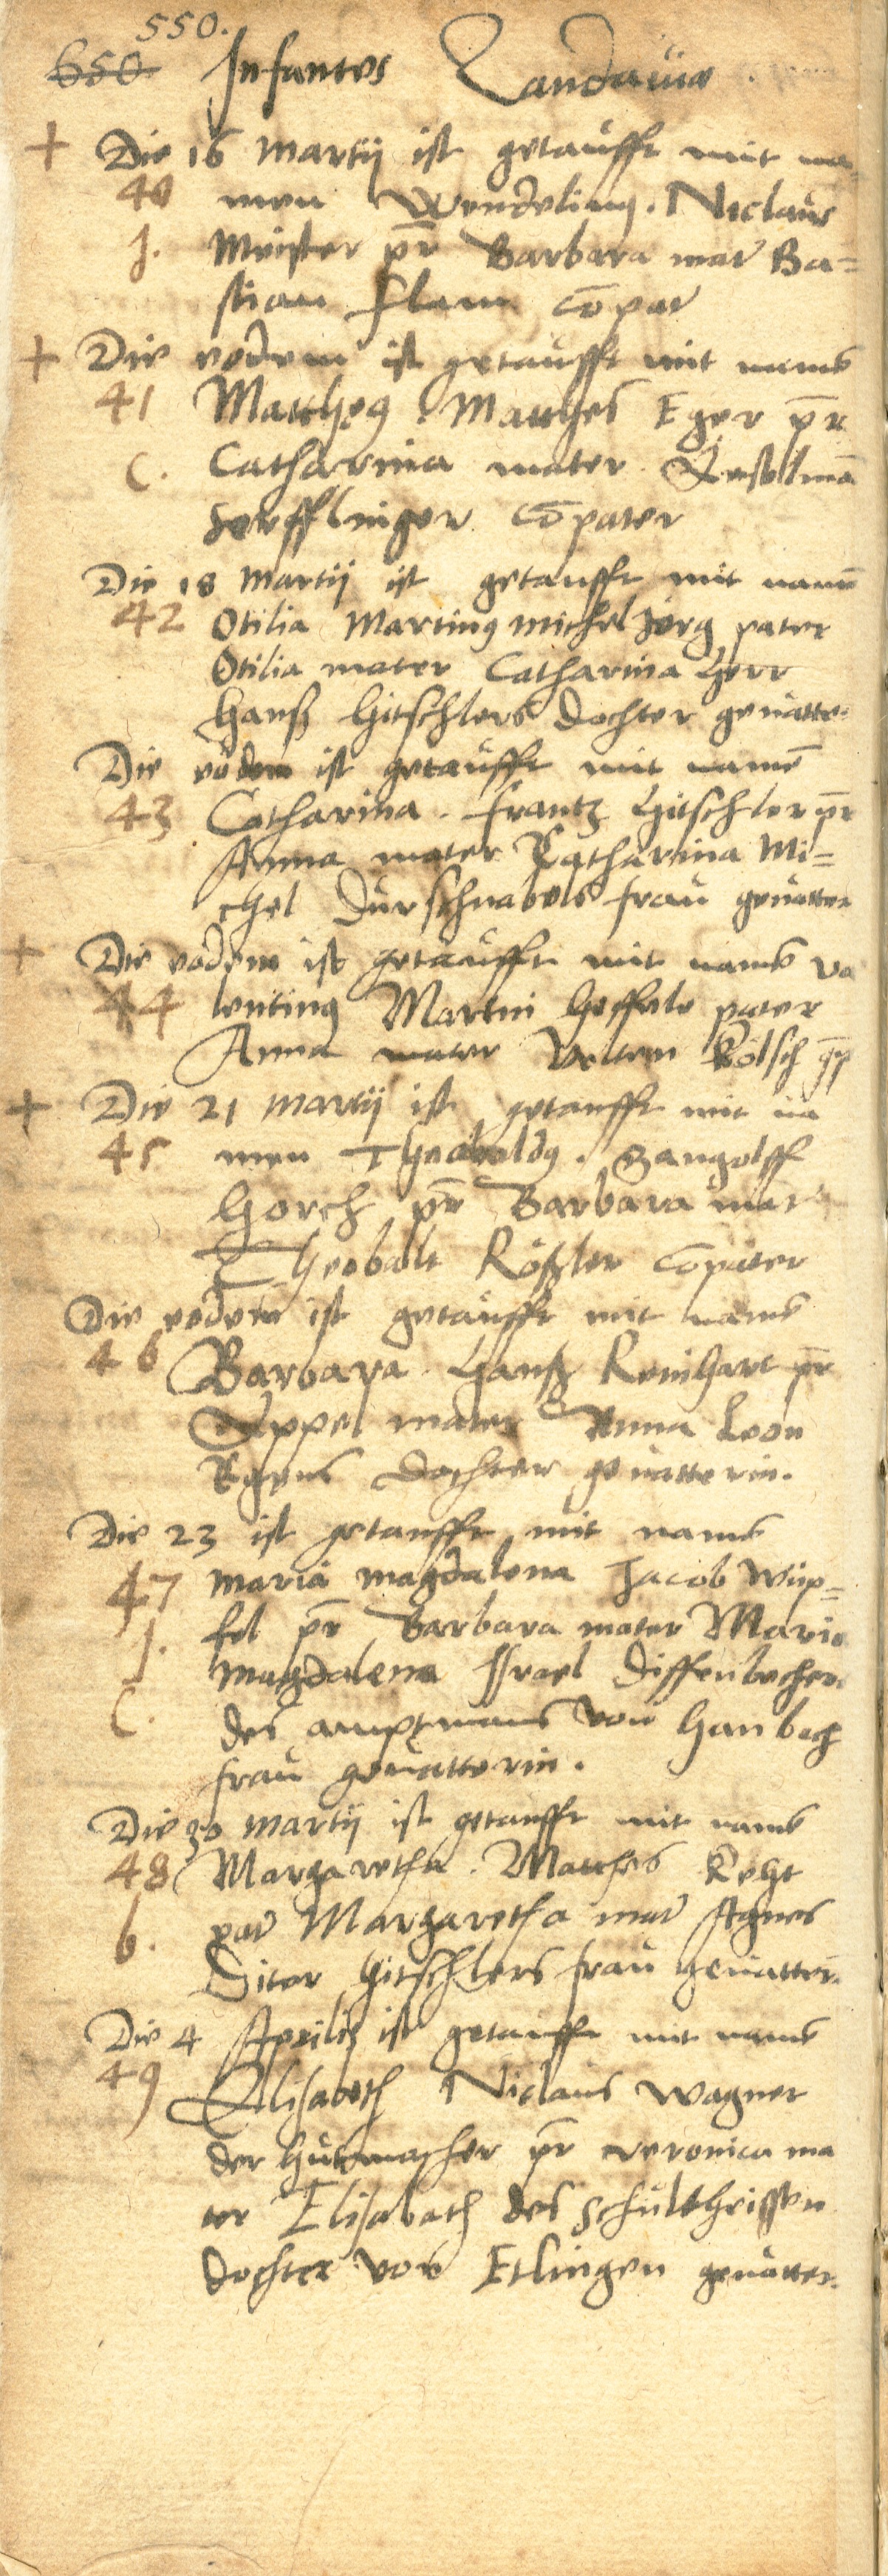 550.
650 Infantes Landauiæ
+ Die 16 Martij ist getaufft mit na
40 men Wendelinus. Niclaus
J. Meister pr Barbara mater Ba=
stian Flam copater
+ Die eodem ist getaufft mit name
41 Mattheus. Matthes Eger pr
C. Catharina mater
copater
Die 18 Martij ist getaufft mit name
42 Otilia Martinus Michel Jörg pater
Otilia mater Catharina Herr
Hanß Hitschlers Dochter geuatte.
Die eodem ist getaufft mit namē
43 Catharina. Frantz Hitschler pr
Anna mater Catharina Mi=
chel Dürschnabels frau geuatter
+ Die eodem ist getaufft mit name Va
44 lentinus Martin Heffele pater
Anna mater Velten Kölsch
+ Die 21 Martij ist getaufft mit na
45 men Theobaldus. Gangolff
Horch pr Barbara mater
Theobalt Rößler copater
Die eodem ist getaufft mit name
46 Barbara. Hanß Reinhart pr
Appel mater Anna Leon
dochter geuatterin.
Die 23 ist getaufft mit name
47 Maria Magdalena Jacob Wüp=
J. fel pr Barbara mater Maria
Magdalena Israel Diffenbecher
C. des amptmans von Hanbach
frau geuatterin.
Die 30 Martij ist getaufft mit name
48 Margaretha. Matthes Keht
b. pater Margaretha mater Agnes
Diter Hitschlers frau geuatter.
Die 4 Aprilis ist getaufft mit name
49 Elisabeth Niclaus Wagner
der Hutmacher pr Veronica ma
ter Elisabeth des Schultheissen
dochter von Etlingen geuatter.